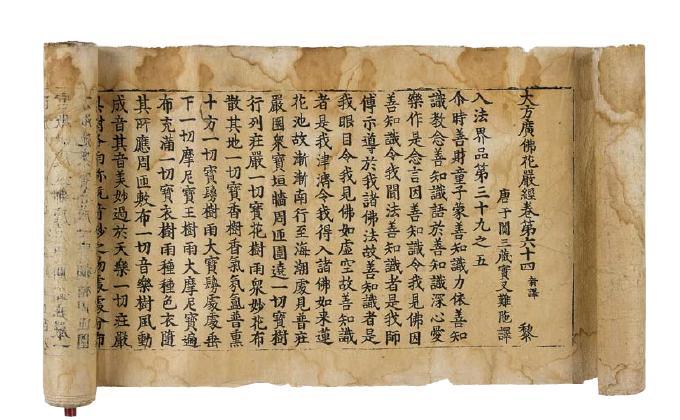 大方廣佛花嚴經卷第六十四 新譯 黎
唐于闐三藏實叉難陁譯
入法界品第三十九之五
尒時善財童子蒙善知識力依善知
識教念善知識語於善知識深心愛
樂作是念言因善知識令我見佛因
善知識令我聞法善知識者是我師
傅示導於我諸佛法故善知識者是
我眼目令我見佛如虛空故善知識
者是我津濟令我得入諸佛如來蓮
花池故漸漸南行至海潮處見普莊
嚴園衆寶垣墻周匝圍遶一切寶樹
行列莊嚴一切寶花樹雨衆妙花布
散其地一切寶香樹香氣氛氳普熏
十方一切寶鬘樹雨大寶鬘處處垂
下一切摩尼寶王樹雨大摩尼寶遍
布充滿一切寶衣樹雨種種色衣隨
其所應周匝敷布一切音樂樹風動
成音其音美妙過於天樂一切莊嚴
具樹各雨珍玩奇妙之物處處分布